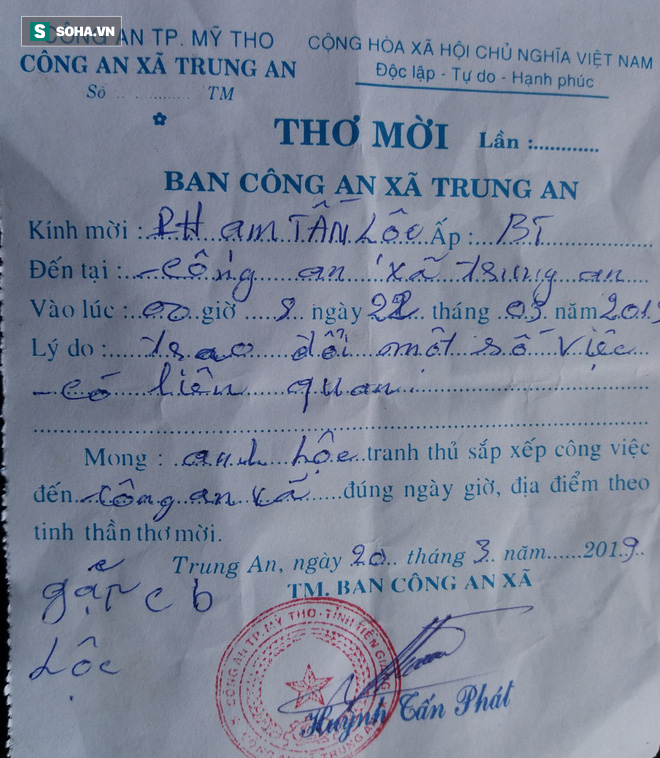 SOHA.VN
CÔNG AN TP. MỸ THO
CÔNG AN XÃ TRUNG AN
Số ............... TM
CỘNG HÒA XÃ HỘI CHỦ NGHĨA VIỆT NAM
Độc lập - Tự do - Hạnh phúc
THƠ MỜI Lần :............
BAN CÔNG AN XÃ TRUNG AN
Kính mời : PHAM TẤN LÔC Ấp : BT
Đến tại : công an xã trung an
Vào lúc : 00 giờ 9 ngày 22 tháng 03 năm 2019
Lý do : trao đổi một số việc
có liên quan.
Mong : anh Lộc tranh thủ sắp xếp công việc
đến công an xã đúng ngày giờ, địa điểm theo
tinh thần thơ mời.
Trung An, ngày 20 tháng 3 năm 2019
TM. BAN CÔNG AN XÃ
gặp c b
Lộc
CÔNG AN TP. MỸ THO - TỈNH TIỀN GIANG
CÔNG AN XÃ TRUNG AN
Huỳnh Tấn Phát